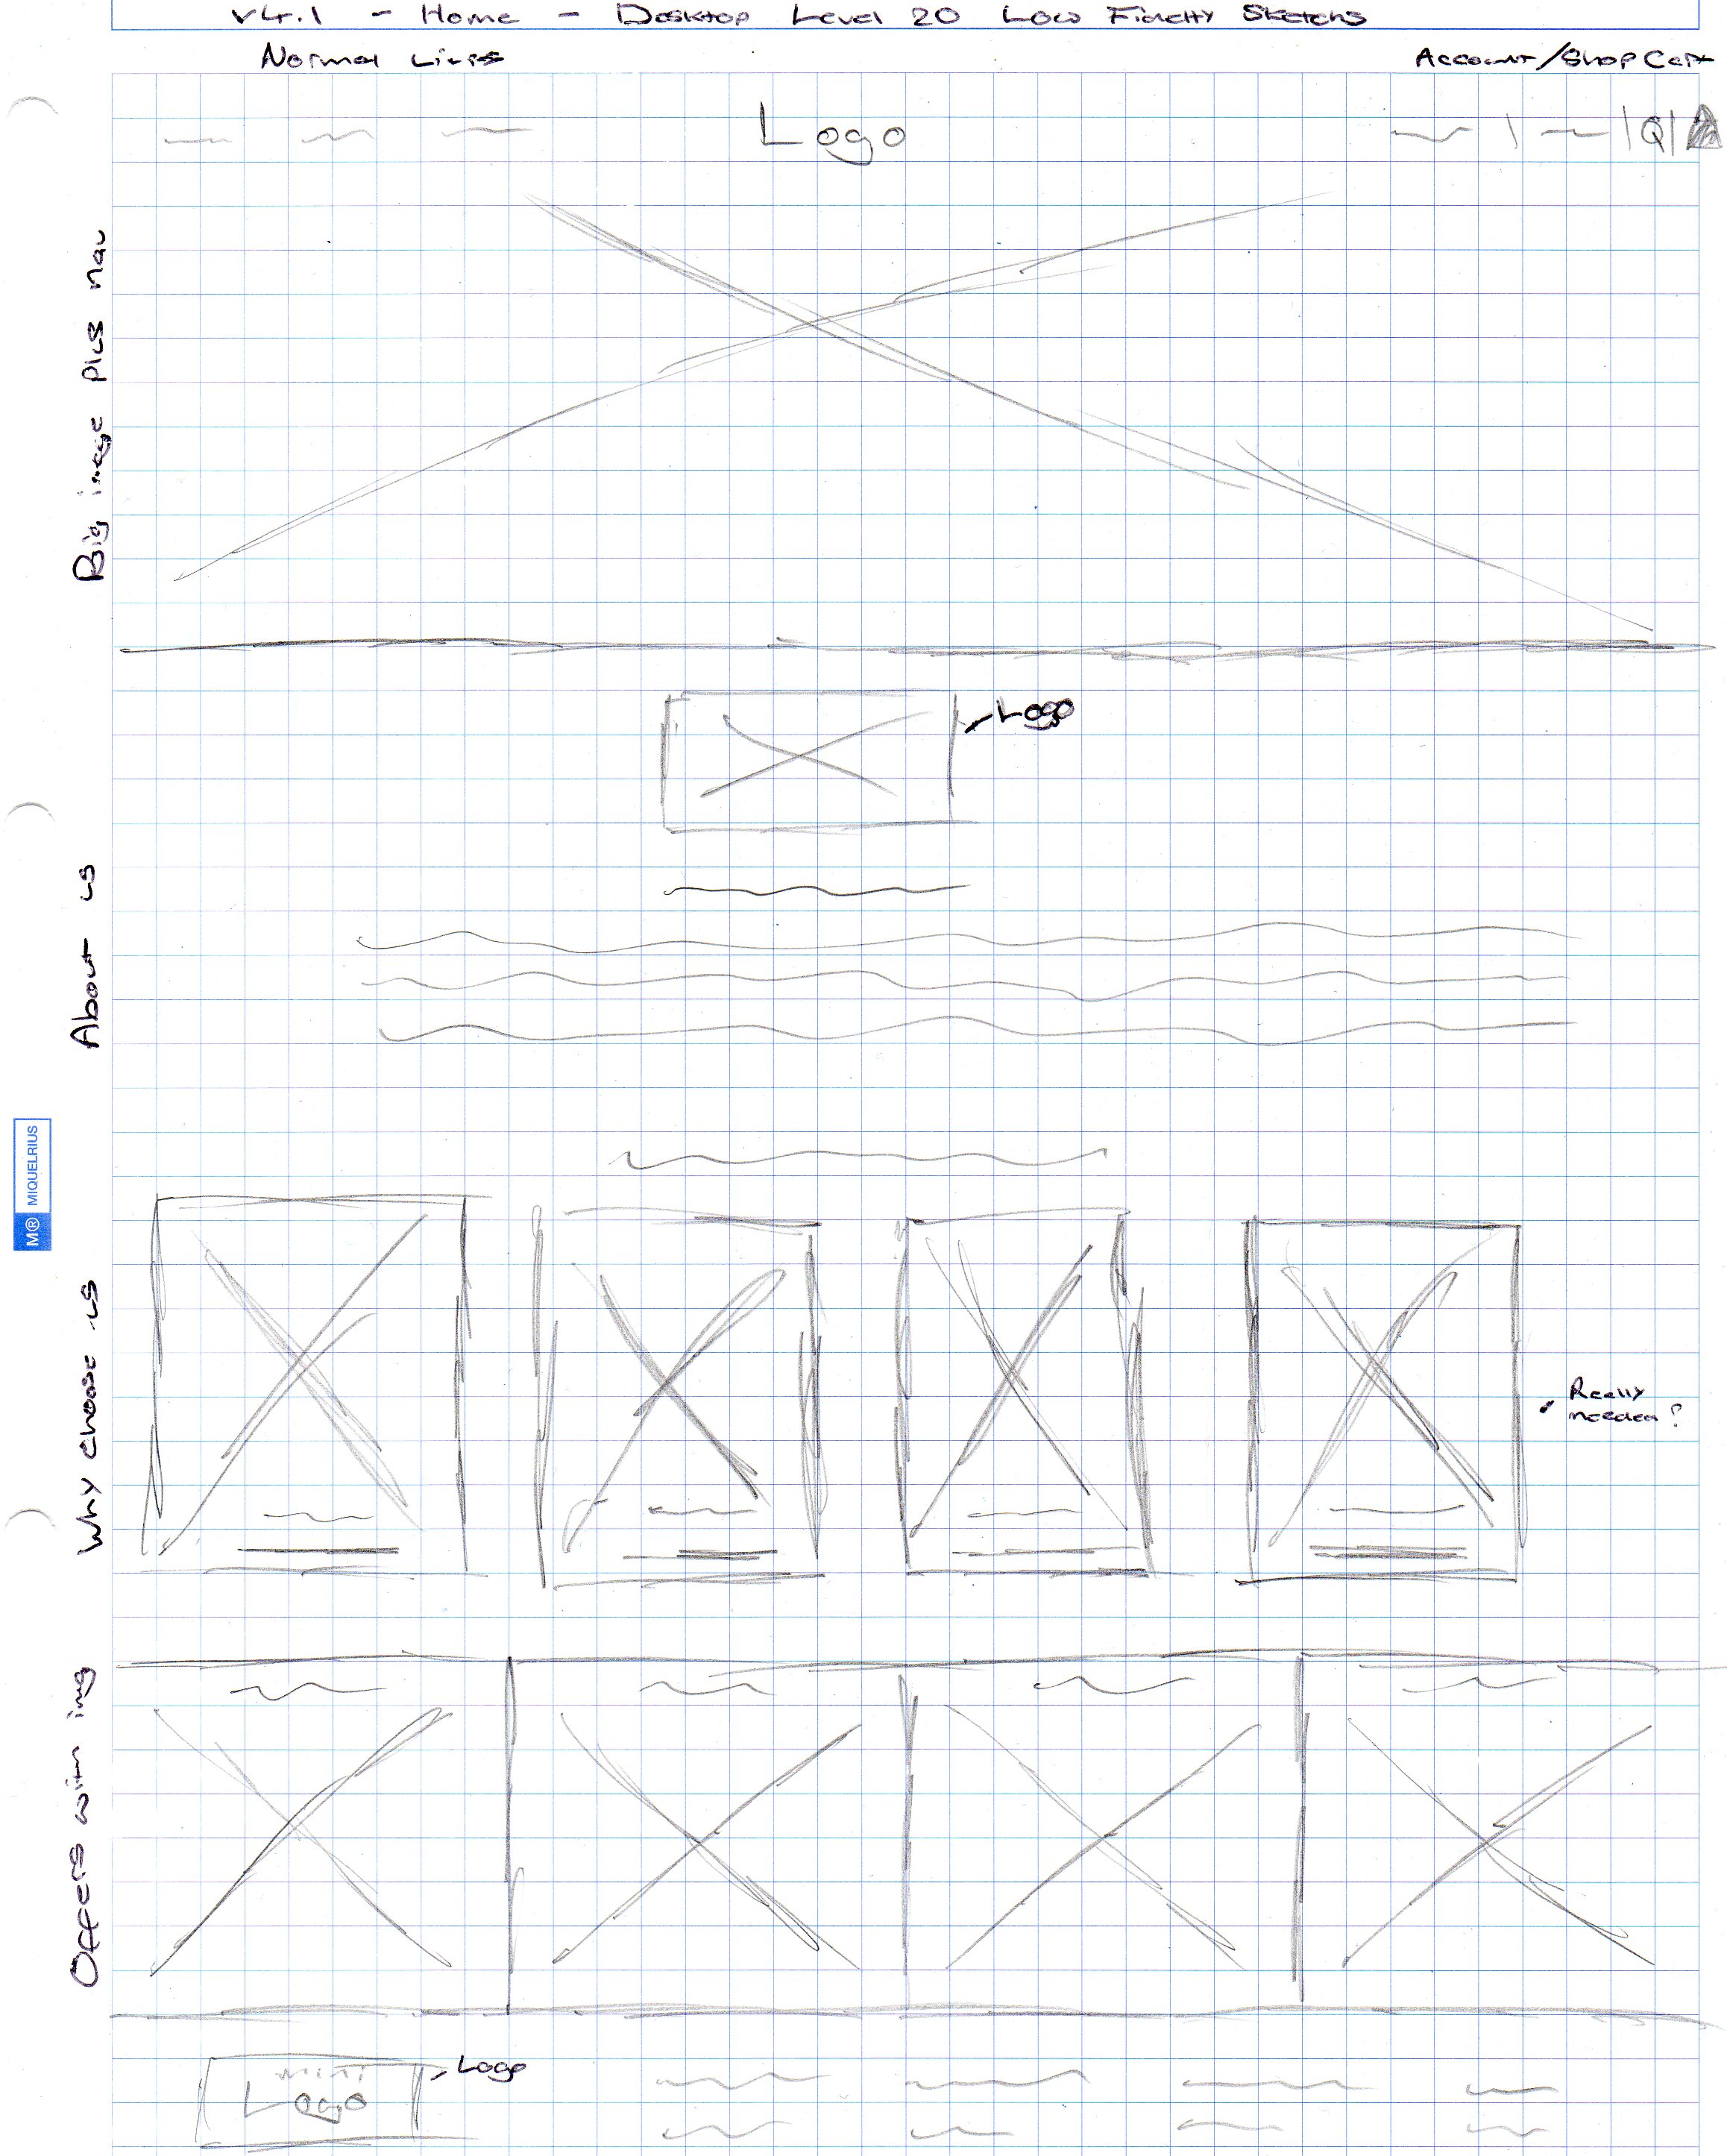 v4.1 - Home - Desktop Level 20 Low Fidelty Sketchs
Normal Links
Account/Shop Cart
Logo
Q
Big image plus nav
Logo
About us
MR MIQUELRIUS
Why choose us
Really
needed?
Offers with img
mini
Logo
Logo